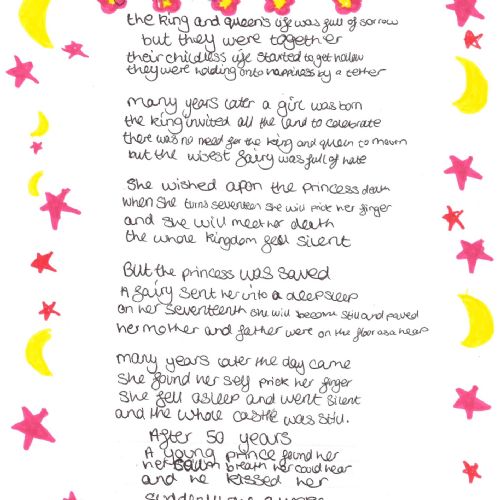 the king and queen's life was full of sorrow
but they were together
their childless life started to get hollow
they were holding onto happiness by a tether
many years later a girl was born
the king invited all the land to celebrate
there was no need for the king and queen to mourn
but the wisest fairy was full of hate
She wished upon the princess death
when she turns seventeen she will prick her finger
and she will meet her death
the whole kingdom fell silent
But the princess was saved
A fairy sent her into a deep sleep
on her seventeenth she will become still and paved
her mother and father were on the floor as a heap
many years later the day came
she found her self prick her finger
she fell asleep and went silent
and the whole castle was still.
After 50 years
A young prince found her
her breath he could hear
and he kissed her